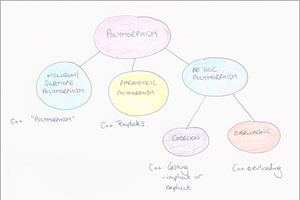 POLYMORPHISM
INCLUSION/
SUBTYPE
POLYMORPHISM
PARAMETRIC
POLYMORPHISM
AD HOC
POLYMORPHISM
C++ "POLYMORPHISM"
C++ Templates
COERCION
OVERLOADING
C++ Casting
- implicit or
explicit
C++ overloading